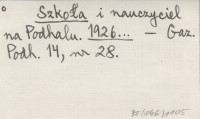 Szkoła i nauczyciel
na Podhalu. 1926... — Gaz.
Podh. 14, nr 28.